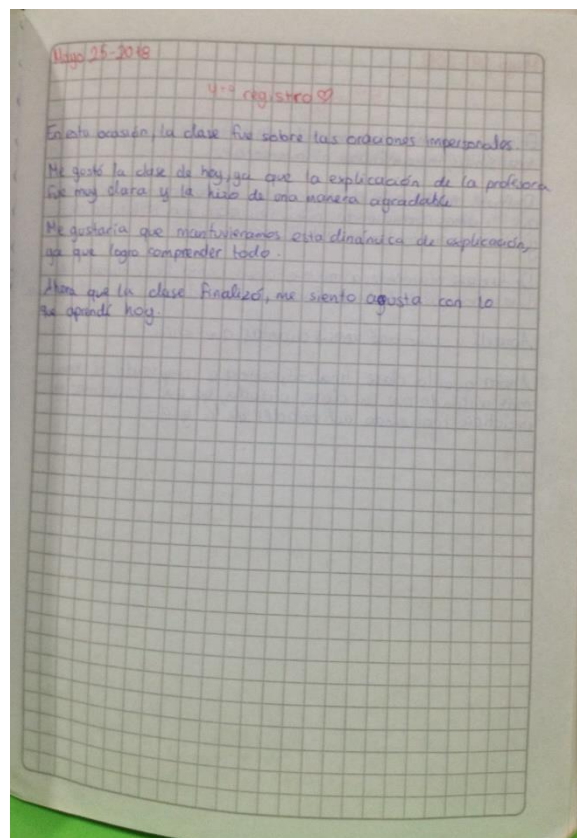 Mayo 25-2018
4to registro ♡
En esta ocasión, la clase fue sobre las oraciones impersonales.
Me gustó la clase de hoy, ya que la explicación de la profesora
fue muy clara y la hizo de una manera agradable.
Me gustaría que mantuvieramos esta dinámica de explicación,
ya que logro comprender todo.
Ahora que la clase finalizó, me siento agusta con lo
que aprendí hoy.